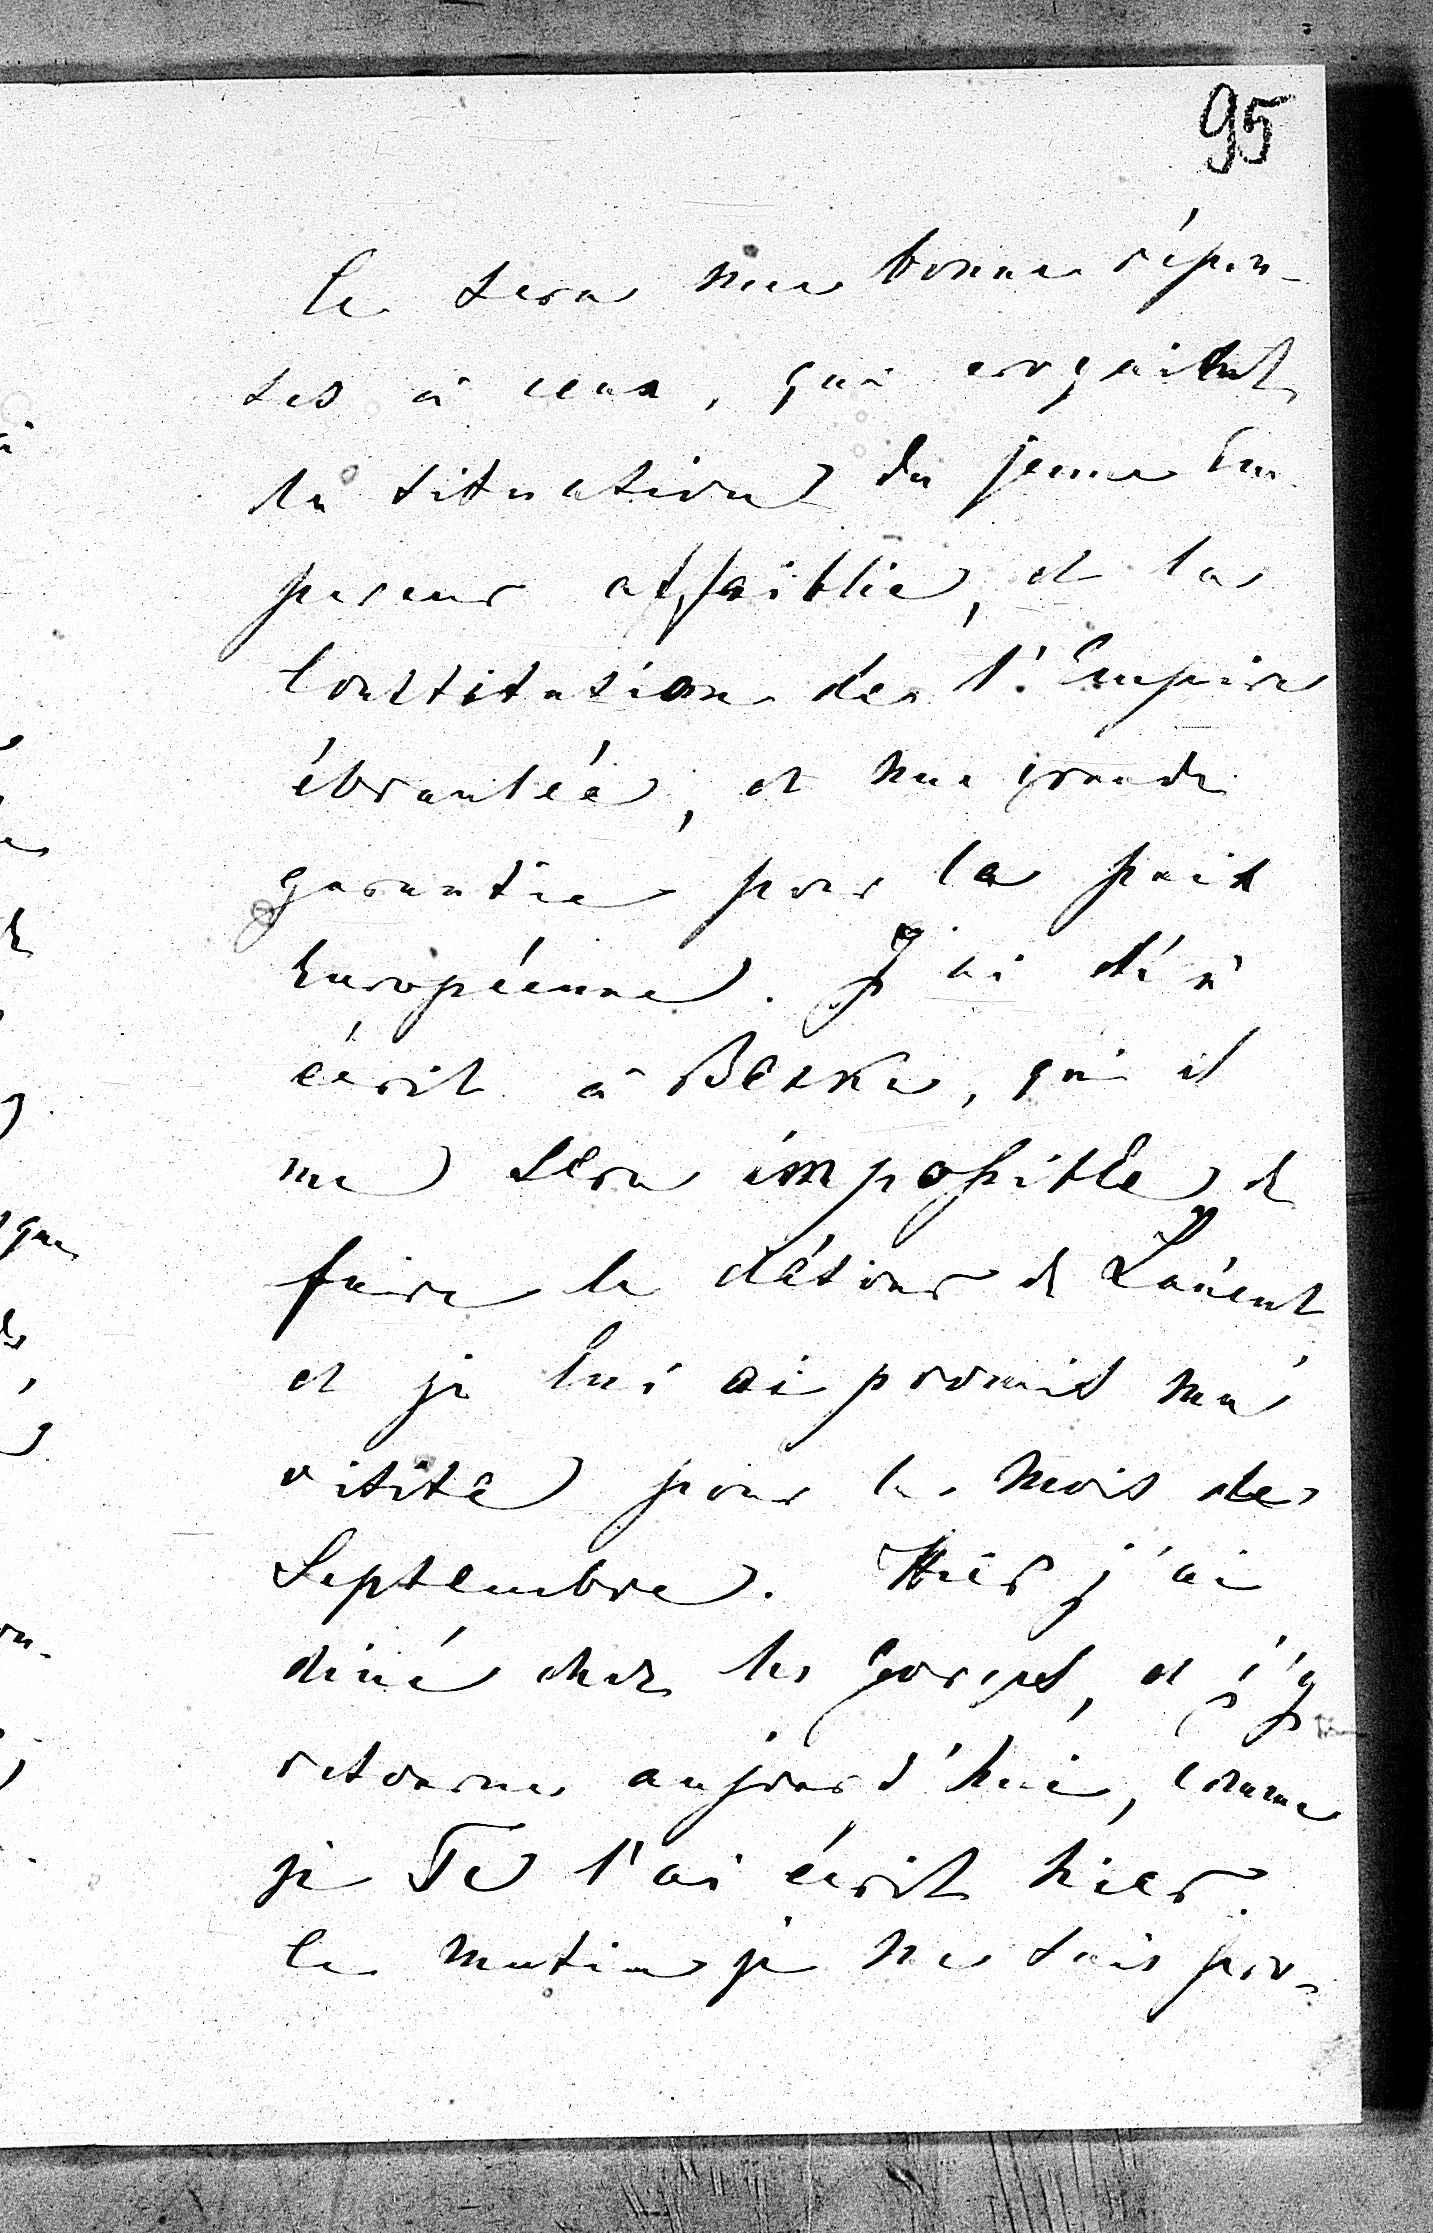 95
Ce sera une bonne répon-
ses à ceux, qui croyaient
la situation du jeune Em-
pereur affaiblie, et la
Constitution de l'Empire
ébranlée, et une grande
garantie pour la paix
Européenne. J'ai déjà
écrit à qu'il
me sera impossible de
faire le détour de
et je lui ai promis ma
visite pour le mois de
Septembre. Hier j'ai
diné chez les et j'y
retourne aujourd'hui, comme
je Te l'ai écrit hier.
Ce matin je me suis pro-